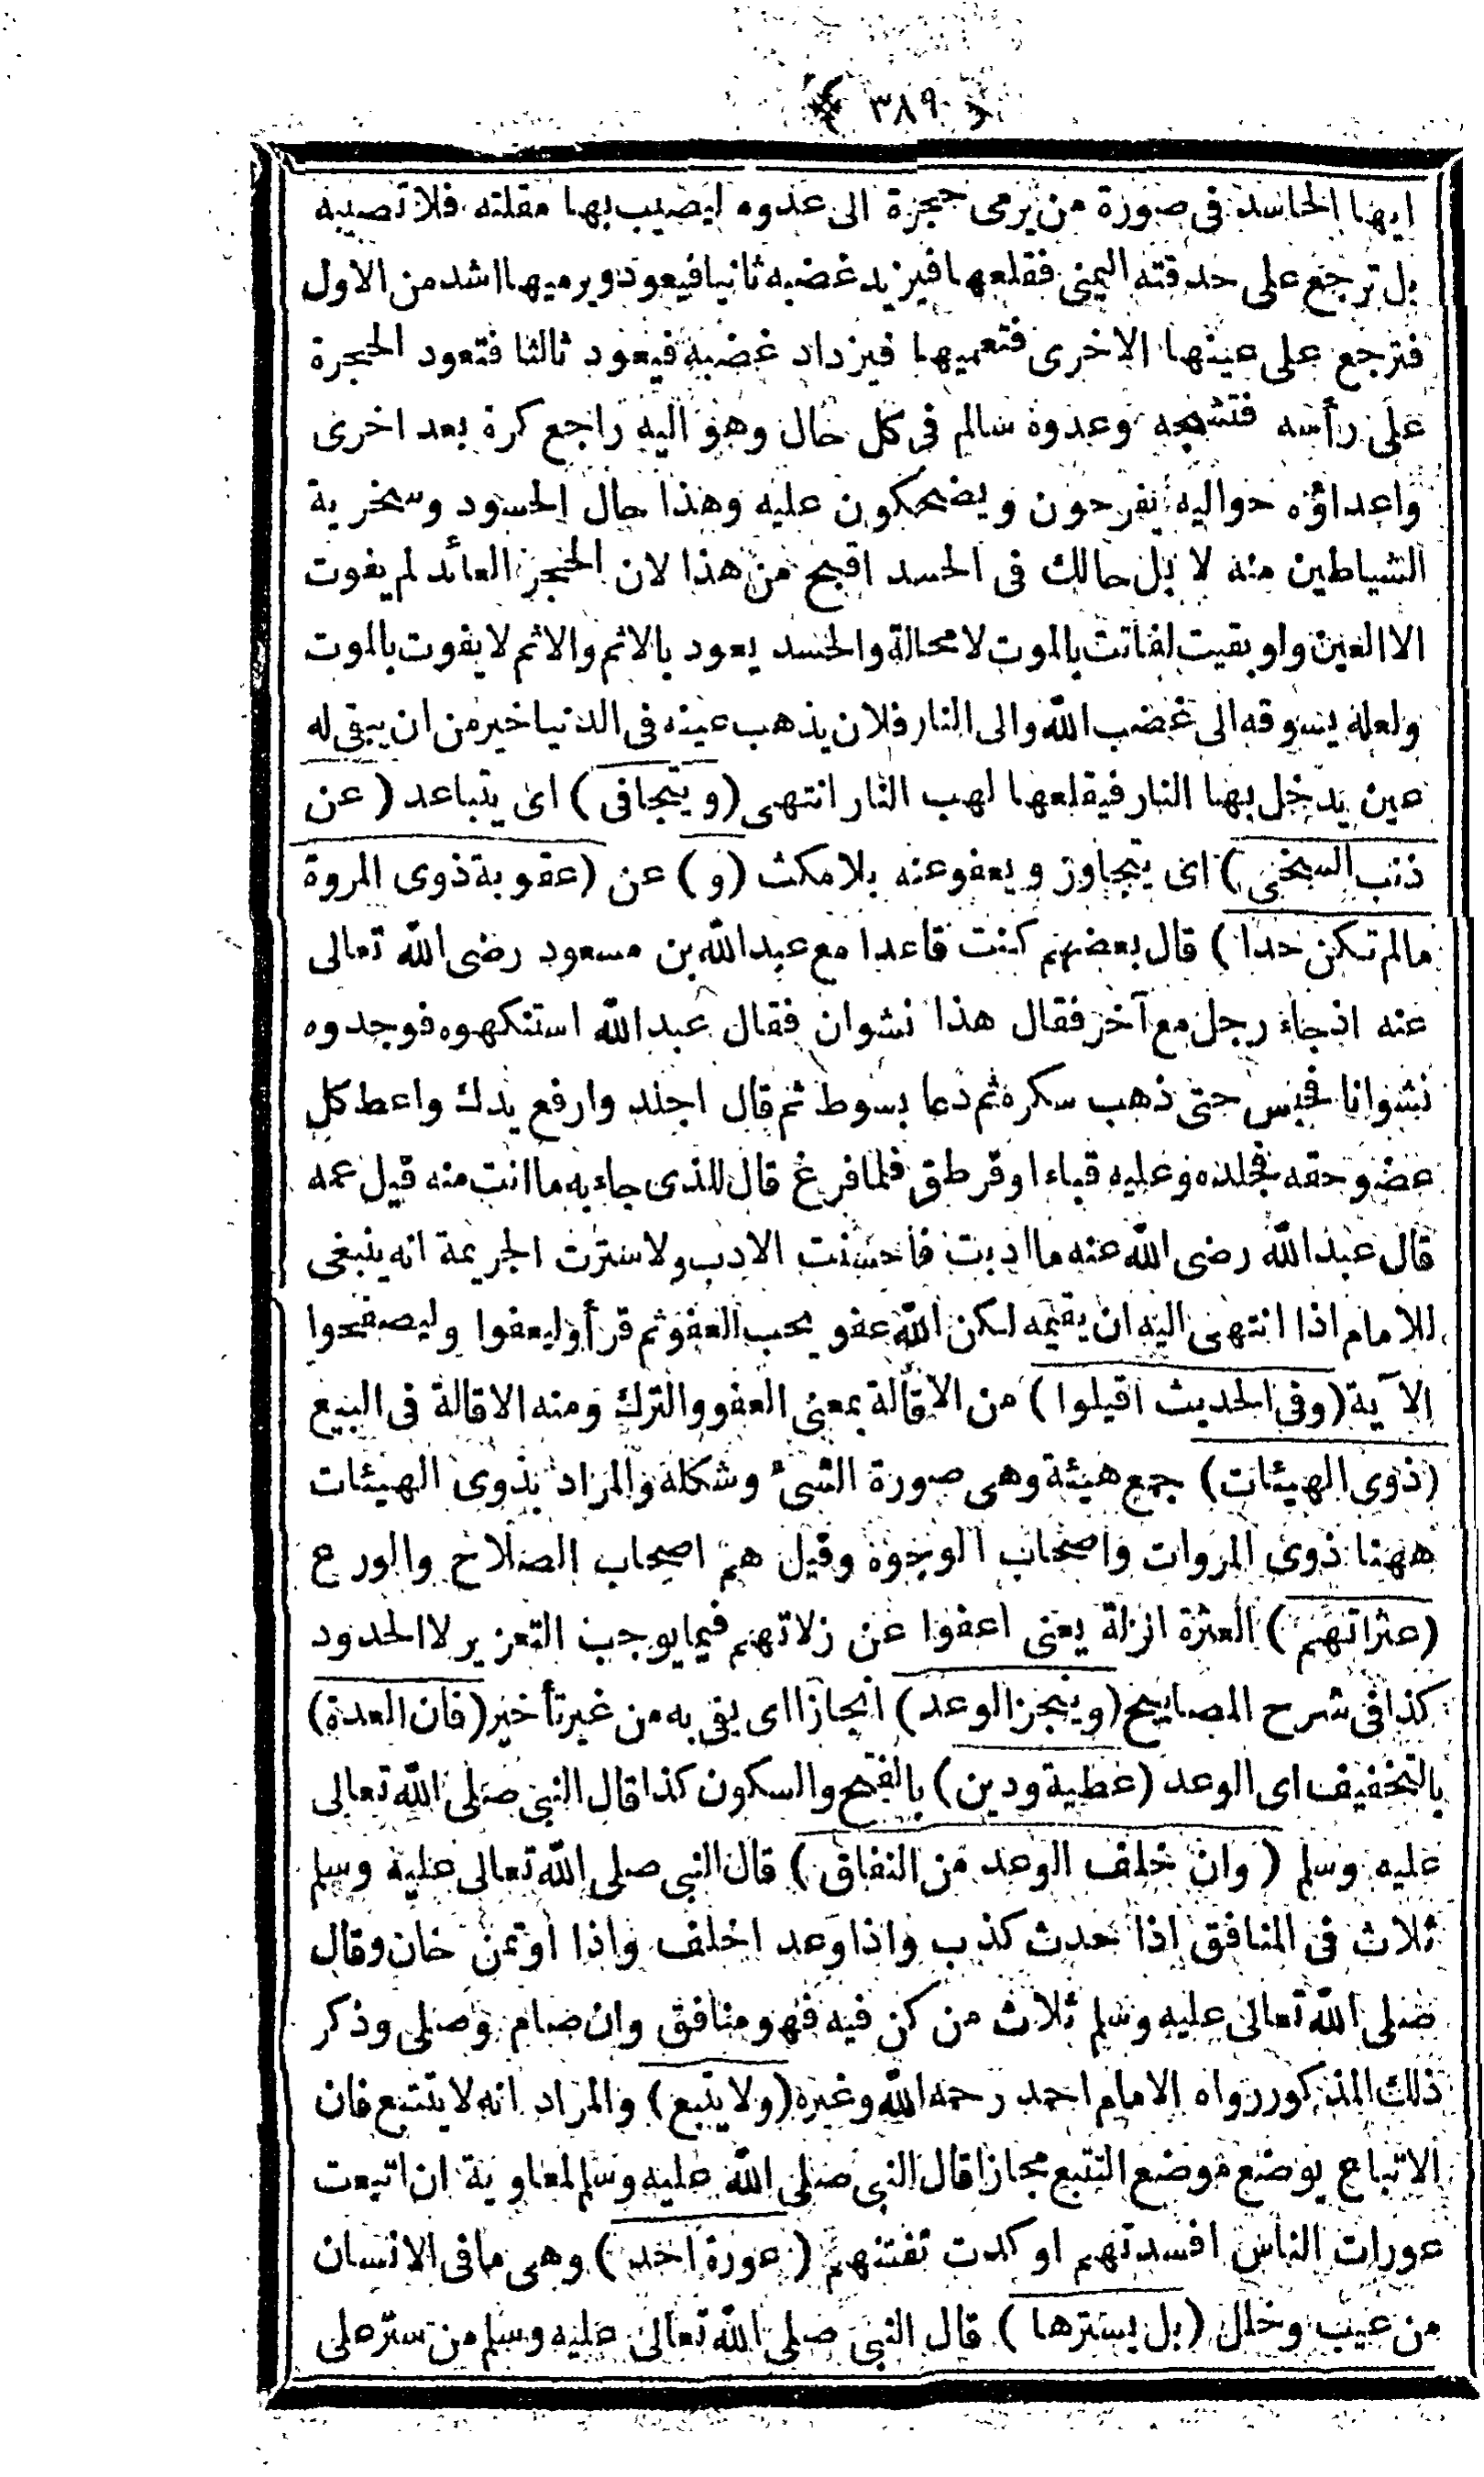 ﴿ ٣٨٩ ﴾
ايها الحاسد فى صورة من يرمى حجرة الى عدوه ليصيب بها مقلته فلا تصيبه
بل ترجع على حدقته اليمنى فقلعها فيزيد غضبه ثانيا فيعود ويرميها اشد من الاول
فترجع على عينها الاخرى فتعميها فيزداد غضبه فيعود ثالثا فتعود الحجرة
على رأسه فتشجه وعدوه سالم فى كل حال وهو اليه راجع كرة بعد اخرى
واعداؤه حواليه يفرحون ويضحكون عليه وهذا حال الحسود وسخرية
الشياطين منه لا بل حالك فى الحسد اقبح من هذا لان الحجر العائد لم يفوت
الا العين ولو بقيت لفاتت بالموت لا محالة والحسد يعود بالاثم والاثم لا يفوت بالموت
ولعله يسوقه الى غضب الله والى النار فلان يذهب عينه فى الدنيا خير من ان يبقى له
عين يدخل بها النار فيقلعها لهب النار انتهى (ويتجافى) اى يتباعد (عن
ذنب السخى) اى يتجاوز ويعفو عنه بلا مكث (و) عن (عقوبة ذوى المروة
مالم تكن حدا) قال بعضهم كنت قاعدا مع عبدالله بن مسعود رضى الله تعالى
عنه اذ جاء رجل مع آخر فقال هذا نشوان فقال عبدالله استنكهوه فوجدوه
نشوانا فحبس حتى ذهب سكره ثم دعا بسوط ثم قال اجلد وارفع يدك واعط كل
عضو حقه فجلده وعليه قباء او قرطق فلما فرغ قال للذى جاء به ما انت منه قيل عمه
قال عبدالله رضى الله عنه ما ادبت فاحسنت الادب ولا سترت الجريمة انه ينبغى
للامام اذا انتهى اليه ان يقيمه لكن الله عفو يحب العفو ثم قرأ وليعفوا وليصفحوا
الآية (وفى الحديث اقيلوا) من الاقالة بمعنى العفو والترك ومنه الاقالة فى البيع
(ذوى الهيئات) جمع هيئة وهى صورة الشىء وشكله والمراد بذوى الهيئات
ههنا ذوى المروات واصحاب الوجوه وقيل هم اصحاب الصلاح والورع
(عثراتهم) العثرة الزلة يعنى اعفوا عن زلاتهم فيما يوجب التعزير لا الحدود
كذا فى شرح المصابيح (وينجز الوعد) انجازا اى يفى به من غير تأخير (فان العدة)
بالتخفيف اى الوعد (عطية ودين) بالفتح والسكون كذا قال النبى صلى الله تعالى
عليه وسلم (وان خلف الوعد من النفاق) قال النبى صلى الله تعالى عليه وسلم
ثلاث فى المنافق اذا حدث كذب واذا وعد اخلف واذا اوتمن خان وقال
صلى الله تعالى عليه وسلم ثلاث من كن فيه فهو منافق وان صام وصلى وذكر
ذلك المذكور رواه الامام احمد رحمه الله وغيره (ولا يتبع) والمراد انه لا يتتبع فان
الاتباع يوضع موضع التتبع مجازا قال النبى صلى الله عليه وسلم لمعاوية ان اتبعت
عورات الناس افسدتهم او كدت تفتنهم (عورة احد) وهى ما فى الانسان
من عيب وخلل (بل يسترها) قال النبى صلى الله تعالى عليه وسلم من ستر على